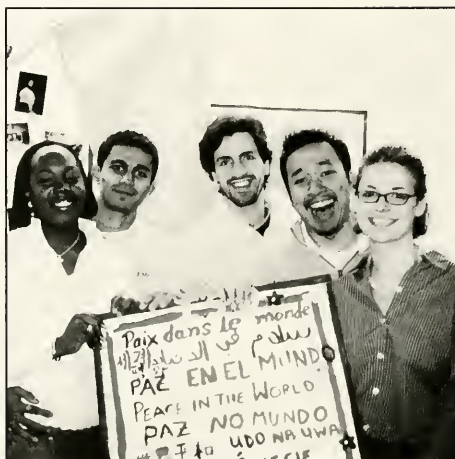 Paix dans le monde
سلام في الدنيا
PAZ EN EL MUND
PEACE IN THE WORLD
PAZ NO MUNDO
平和 UDO NA UWA